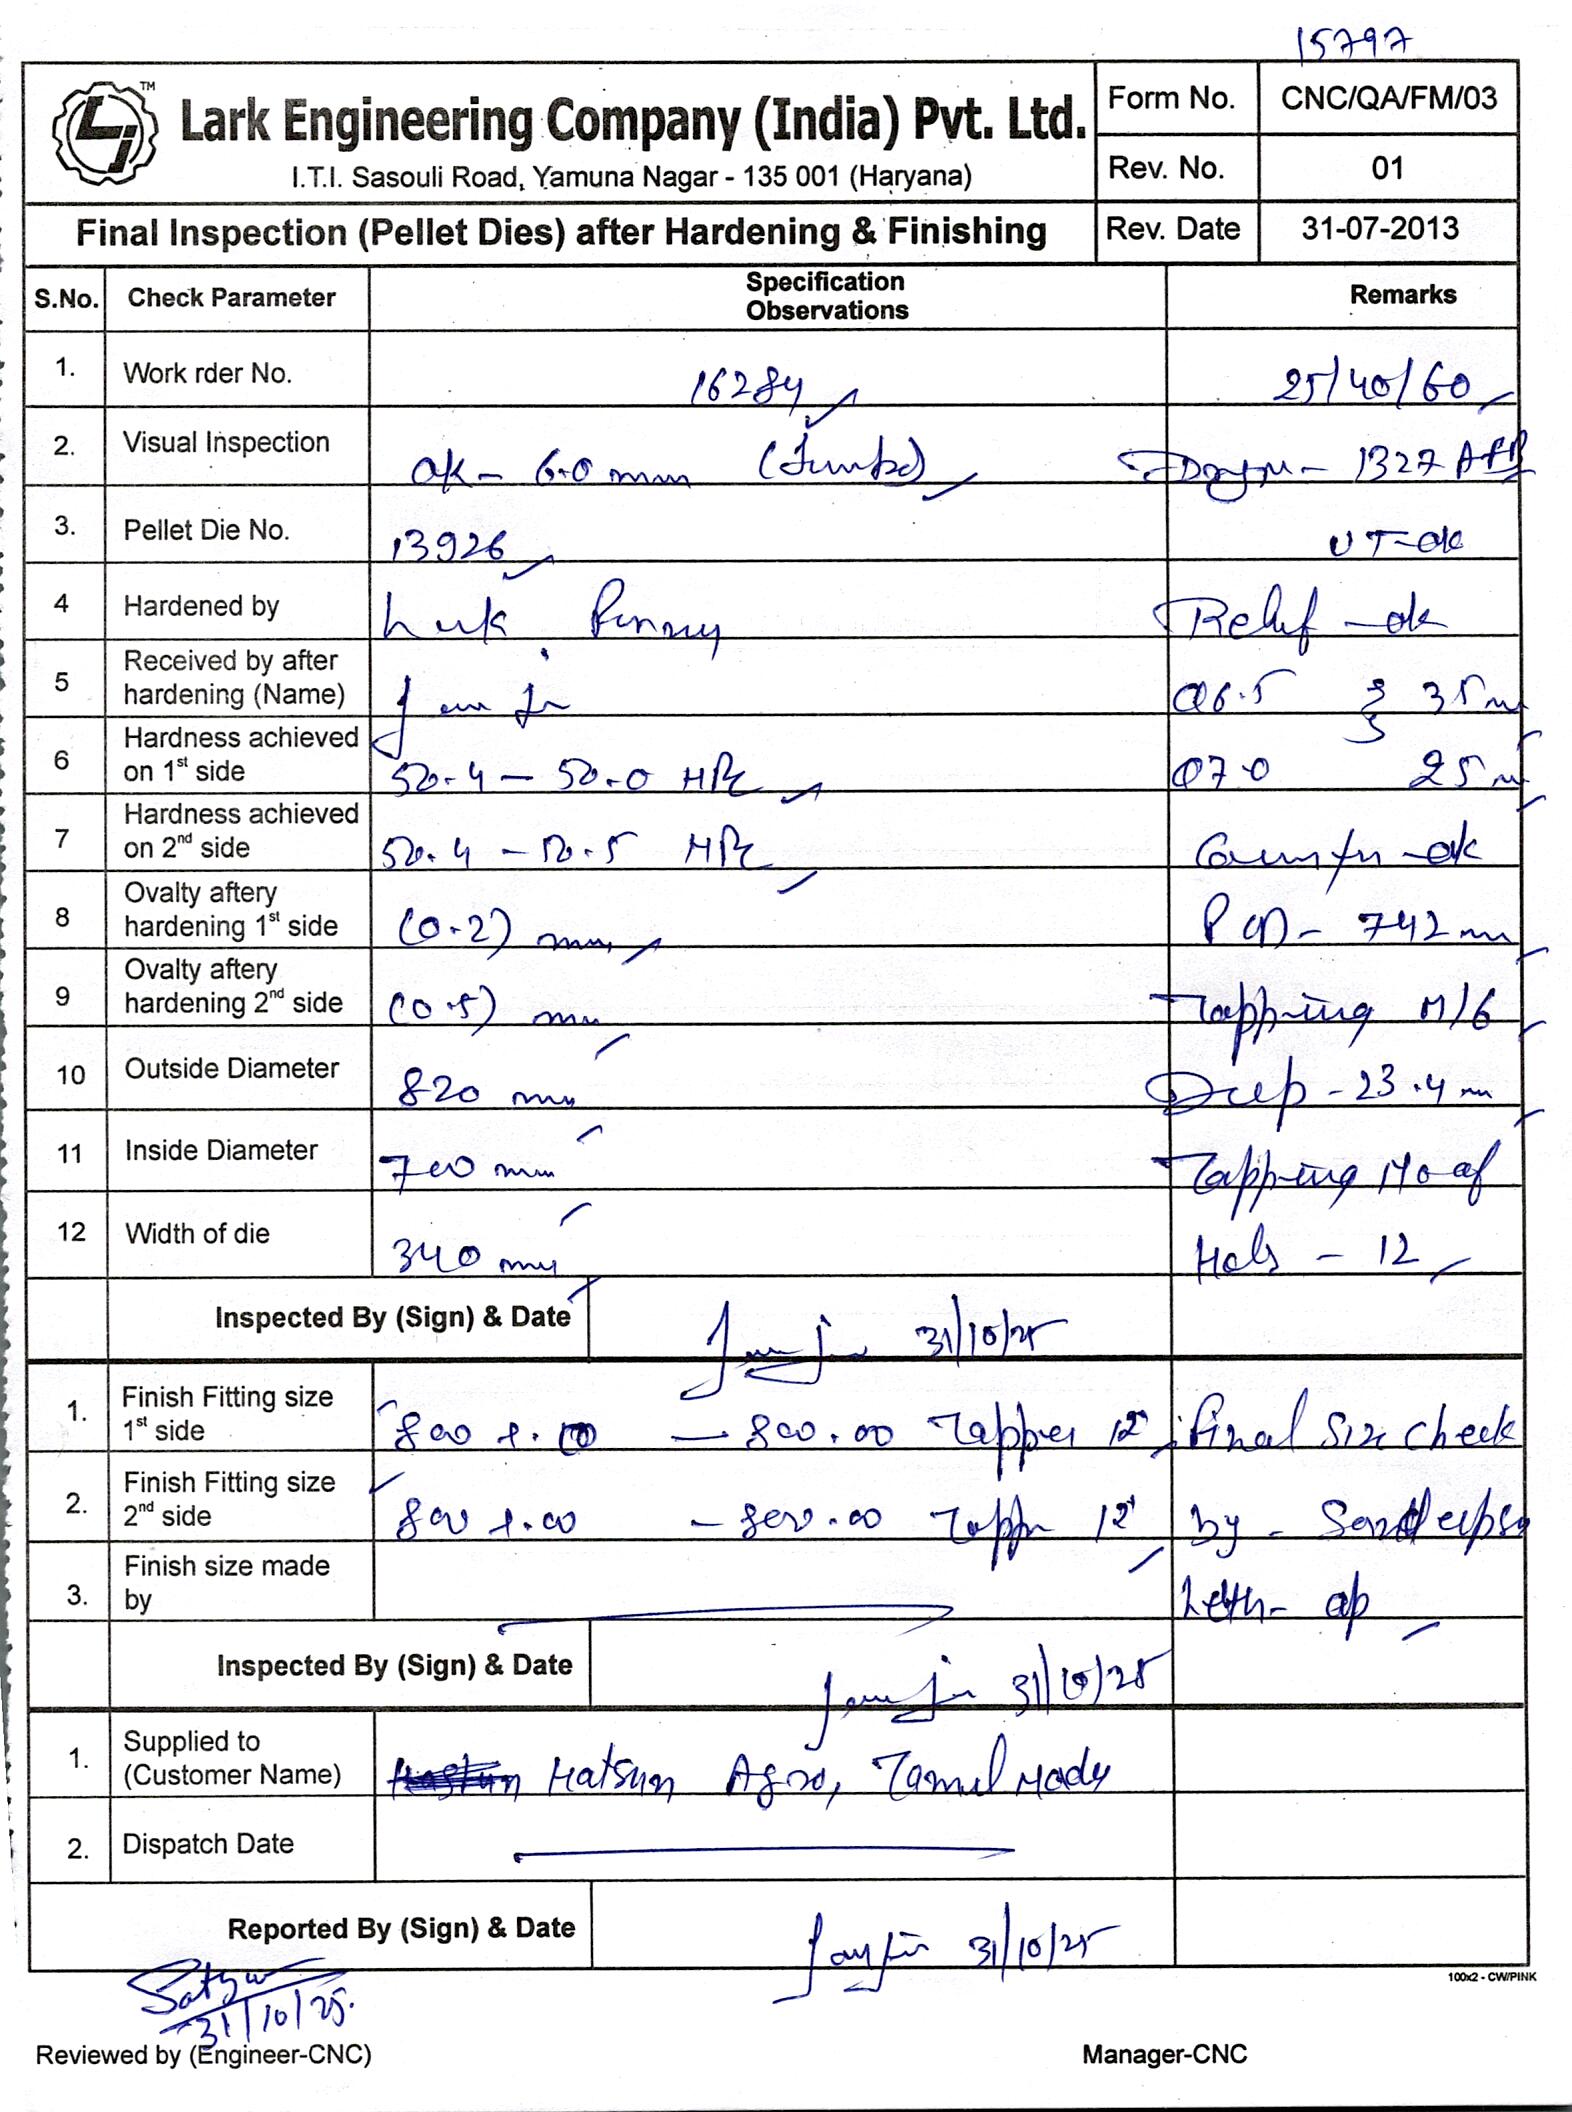 15797
TM
Lark Engineering Company (India) Pvt. Ltd.
I.T.I. Sasouli Road, Yamuna Nagar - 135 001 (Haryana)
Form No. CNC/QA/FM/03
Rev. No. 01
Final Inspection (Pellet Dies) after Hardening & Finishing
Rev. Date 31-07-2013
S.No. Check Parameter Specification Observations Remarks
1. Work rder No. 16284 25/40/60
2. Visual Inspection OK - 6.0 mm 1327
3. Pellet Die No. 13926 UT-ok
4 Hardened by Relief - ok
5 Received by after hardening (Name) Ø6.5 35
6 Hardness achieved on 1st side 50.4 - 50.0 HRc Ø7.0 25
7 Hardness achieved on 2nd side 50.4 - 50.5 HRc - ok
8 Ovalty aftery hardening 1st side (0.2) mm PCD - 742 m
9 Ovalty aftery hardening 2nd side (0.5) mm Tapping M16
10 Outside Diameter 820 mm Deep - 23.4 m
11 Inside Diameter 700 mm Tapping No of
12 Width of die 340 mm Hols - 12
Inspected By (Sign) & Date 31/10/25
1. Finish Fitting size 1st side - 800.00 Tapper 12° Final Size check
2. Finish Fitting size 2nd side - 800.00 12° by - Sandeep
3. Finish size made by
Inspected By (Sign) & Date 31/10/25
1. Supplied to (Customer Name) Hatsun Agro, Tamul Nadu
2. Dispatch Date
Reported By (Sign) & Date 31/10/25
100x2 - CW/PINK
31/10/25.
Reviewed by (Engineer-CNC) Manager-CNC